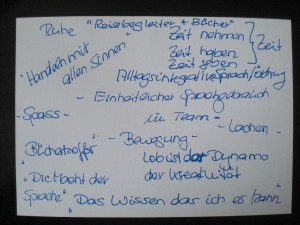 Ruhe "Reisebegleiter + Bücher"
Zeit nehmen
Zeit haben } Zeit
Zeit geben
"Handeln mit allen Sinnen"
Alltagsintegrative Sprachförderung
- Einheitlicher Sprachgebrauch
im Team -
- Spass -
- Lachen -
- Bewegung -
"Bücherkoffer"
Lob ist der Dynamo
der Kreativität
"Die Macht der
Sprache"
"Das Wissen das ich es kann"